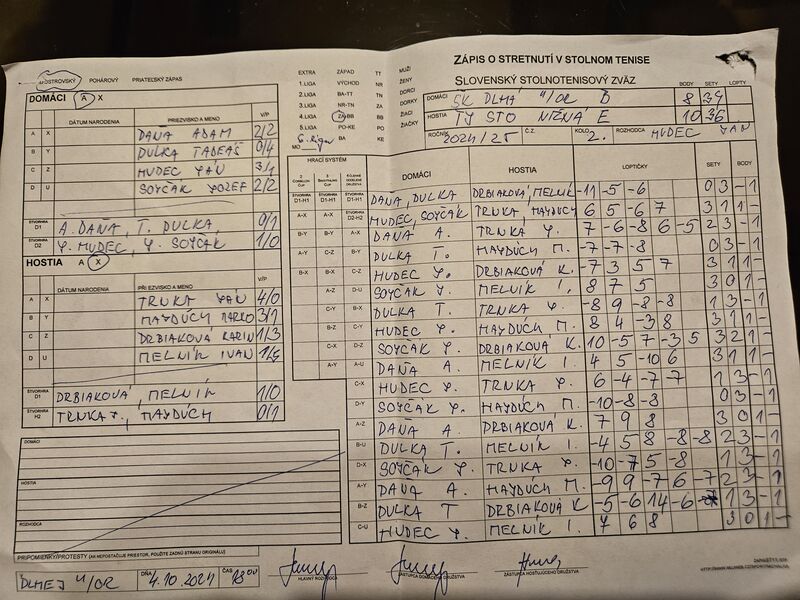 ZÁPIS O STRETNUTÍ V STOLNOM TENISE
SLOVENSKÝ STOLNOTENISOVÝ ZVÄZ
MAJSTROVSKÝ POHÁROVÝ PRIATEĽSKÝ ZÁPAS
EXTRA ZÁPAD TT MUŽI
1.LIGA VÝCHOD NR ŽENY
2.LIGA BA-TT TN DORCI
3.LIGA NR-TN ZA DORKY
4.LIGA ZA-BB BB ŽIACI
5.LIGA PO-KE PO ŽIAČKY
6. liga BA KE
MO
BODY SETY LOPTY
DOMÁCI ŠK DLHÁ N/OR B 8 34
HOSTIA TJ STO NIŽNÁ E 10 36
ROČNÍK 2024/25 Č.Z. KOLO 2. ROZHODCA HUDEC JÁN
DOMÁCI A X
DÁTUM NARODENIA PRIEZVISKO A MENO V/P
A X DAŇA ADAM 2/2
B Y DULKA TADEÁŠ 0/4
C Z HUDEC JÁN 3/1
D U SOYČÁK JOZEF 2/2
ŠTVORHRA D1 A. DAŇA, T. DULKA 0/1
ŠTVORHRA D2 J. HUDEC, J. SOYČÁK 1/0
HOSTIA A X
DÁTUM NARODENIA PRIEZVISKO A MENO V/P
A X TRNKA JÁN 4/0
B Y HAYDÚCH MARKO 3/1
C Z DRBIAKOVÁ KARIN 1/3
D U MELNÍK IVAN
ŠTVORHRA D1 DRBIAKOVÁ, MELNÍK 1/0
ŠTVORHRA H2 TRNKA J., HAYDÚCH 0/1
HRACÍ SYSTÉM DOMÁCI HOSTIA LOPTIČKY SETY BODY
DAŇA, DULKA DRBIAKOVÁ, MELNÍK -11 -5 -6 0 3 - 1
HUDEC, SOYČÁK TRNKA, HAYDÚCH 6 5 -6 7 3 1 1 -
DAŇA A. TRNKA J. 7 -6 -8 6 -5 2 3 - 1
DULKA T. HAYDÚCH M. -7 -7 -8 0 3 - 1
HUDEC J. DRBIAKOVÁ K. -7 3 5 7 3 1 1 -
SOYČÁK J. MELNÍK I. 8 7 5 3 0 1 -
DULKA T. TRNKA J. -8 9 -8 -8 1 3 - 1
HUDEC J. HAYDÚCH M. 8 4 -3 8 3 1 1 -
SOYČÁK J. DRBIAKOVÁ K. 10 -5 7 -3 5 3 2 1 -
DAŇA A. MELNÍK I. 4 5 -10 6 3 1 1 -
HUDEC J. TRNKA J. 6 -4 -7 -7 1 3 - 1
SOYČÁK J. HAYDÚCH M. -10 -8 -8 0 3 - 1
DAŇA A. DRBIAKOVÁ K. 7 9 8 3 0 1 -
DULKA T. MELNÍK I. -4 5 8 -8 -8 2 3 - 1
SOYČÁK J. TRNKA J. -10 -7 5 -8 1 3 - 1
DAŇA A. HAYDÚCH M. -9 9 -7 6 -7 2 3 - 1
DULKA T DRBIAKOVÁ K -5 -6 14 -6 1 3 - 1
HUDEC J. MELNÍK I. 7 6 8 3 0 1 -
DOMÁCI
HOSTIA
ROZHODCA
PRIPOMIENKY/PROTESTY (AK NEPOSTAČUJE PRIESTOR, POUŽITE ZADNÚ STRANU ORIGINÁLU)
DLHEJ N/OR DŇA 4.10.2024 ČAS 18 00
HLAVNÝ ROZHODCA ZÁSTUPCA DOMÁCEHO DRUŽSTVA ZÁSTUPCA HOSŤUJÚCEHO DRUŽSTVA